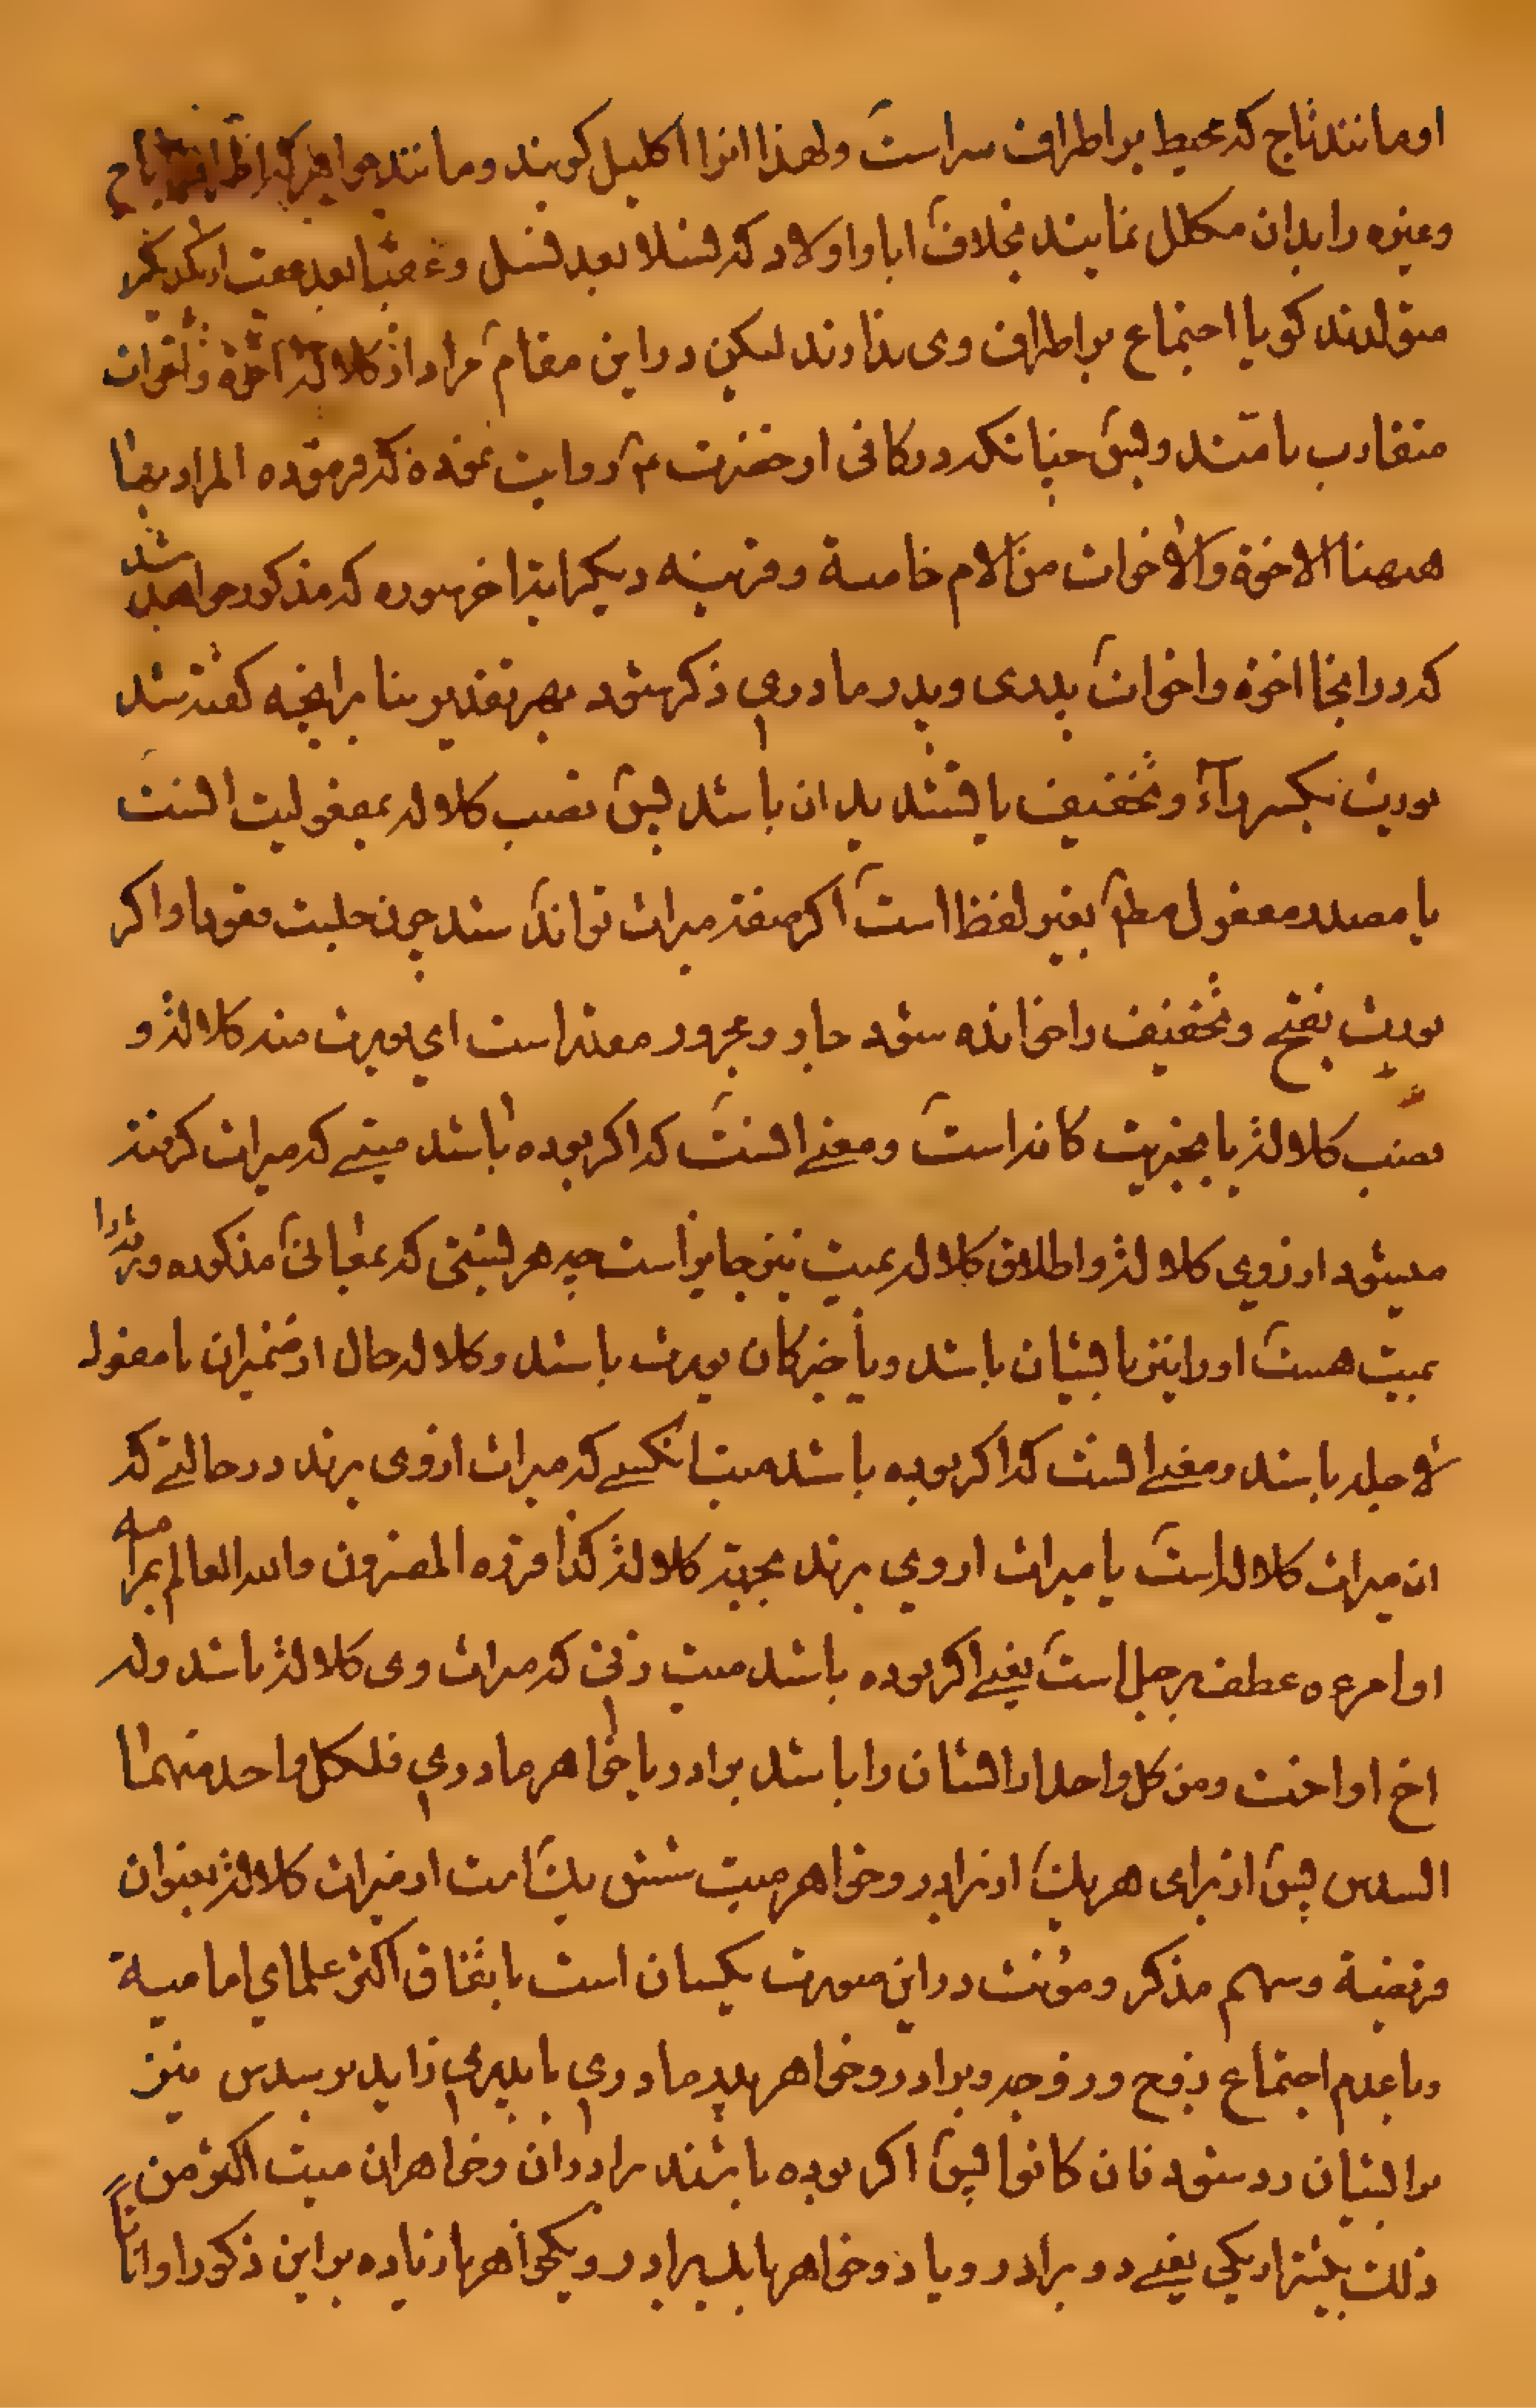 او مانند تاج که محیط بر اطراف سر است ولهذا انرا اکلیل کویند و مانند جواهر که اطراف تاج
وغیره را بدان مکلل نمایند بخلاف ابا و اولاد که نسلا بعد نسل و عقبا بعد عقب از یکدیکر
متولدند کویا اجتماع بر اطراف وی ندارند لیکن در این مقام مراد از کلاله اخوة و اخوات
متقارب بامتند وبس چنانکه در کافی از حضرت ص روایت نموده که فرموده المراد بها
ههنا الاخوة والاخوات من الام خاصة و قرینه دیکر ایة اخر سوره که مذکور خواهد شد
که در اینجا اخوة واخوات پدری و پدر مادری ذکر شود بهر تقدیر بنا بر انچه کفته شد
یورث بکسر راء و تخفیف یا تشدید ان باشد پس نصب کلاله بمفعولیت است
یا مصدر مفعول مط بغیر لفظ است اکر صفة میراث تواند شد چون جلست قعودا واکر
یورث بفتح و تخفیف را خوانده شود جار و مجرور مقدر است ای یورث منه کلالة و
نصب کلالة یا بخبریت کانه است و معنے انست که اکر بوده باشد میتے که میراث کرفته
میشود از روی کلالة و اطلاق کلاله بمیت نیز جایز است چه هر نسبتی که بمعانی مذکوره ورثه را
بمیت هست او را نیز با ایشان باشد و یا خبر کان یورث باشد و کلاله حال از ضمیران یا مفعول
لاجله باشد و معنے انست که اکر بوده باشد میت انکسے که میراث از وی برند در حالتے که
ان میراث کلاله است یا میراث از وی برند بجهة کلالة کذا قرره المفسرون والله العالم بمرامه
او امرءه عطف بر رجل است یعنے اکر بوده باشد میت زنی که میراث وی کلالة باشد وله
اخ او اخت ومن کل واحد از ایشان را باشد برادر یا خواهر مادری فلکل واحد منهما
السدس پس از برای هر یک از برادر و خواهر میت شش یک است از میراث کلالة بعنوان
فریضة و سهم مذکر و مؤنث در این صورت یکسان است باتفاق اکثر علمای امامیه
وبا عدم اجتماع زوج و زوجه و برادر و خواهر پدر مادری یا پدری زاید بر سدس نیز
بر ایشان رد شود فان کانوا پس اکر بوده باشند برادران و خواهران میت اکثر من
ذلک بیشتر از یکی یعنے دو برادر و یا دو خواهر یا یک برادر و یکخواهر یا زیاده بر این ذکورا و اناثا